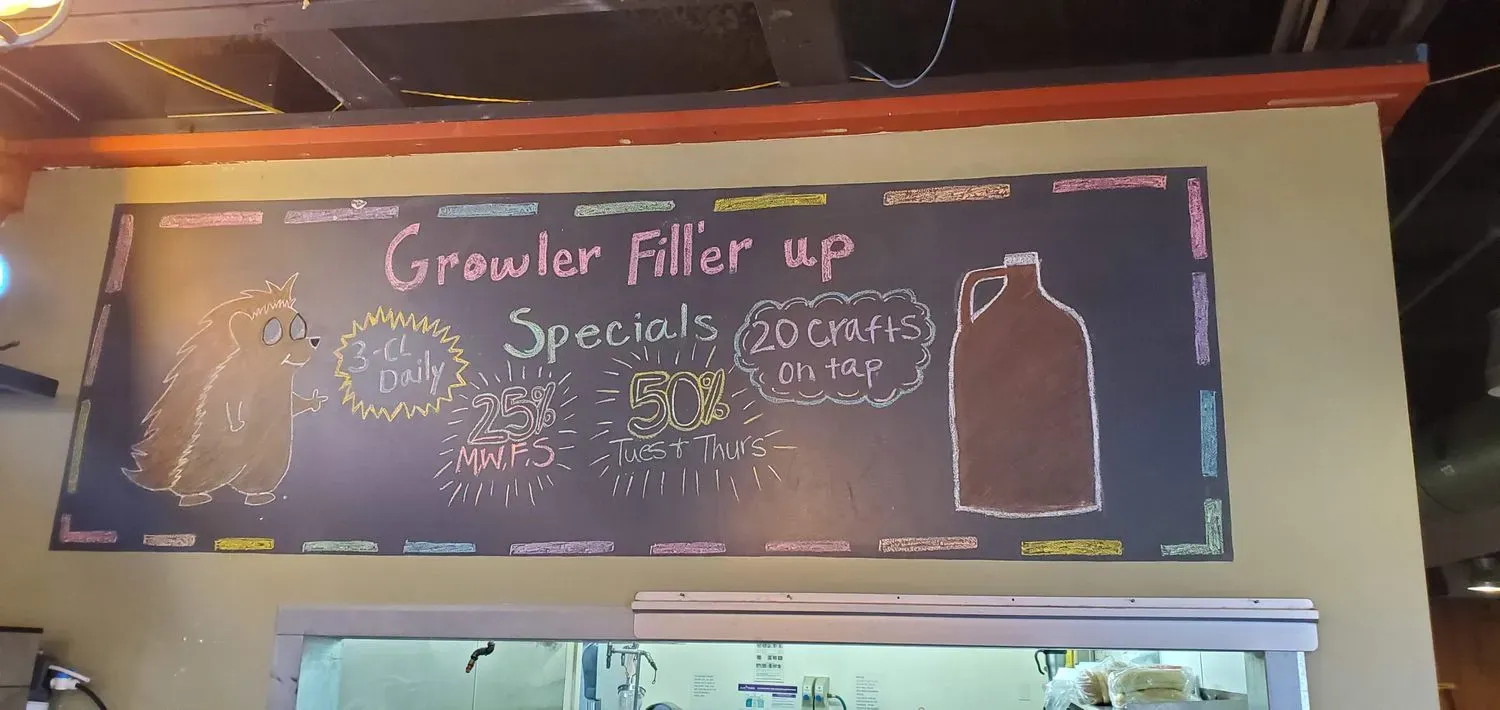 Growler Fill'er up
Specials
3-CL
Daily
25%
MW.F.S
50%
Tues + Thurs
20 crafts
on tap